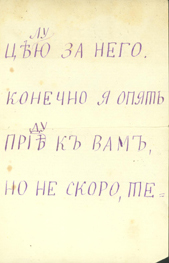 ЦѢЛУЮ ЗА НЕГО.
КОНЕЧНО Я ОПЯТЬ
ПРІѢДУ КЪ ВАМЪ,
НО НЕ СКОРО, ТЕ=